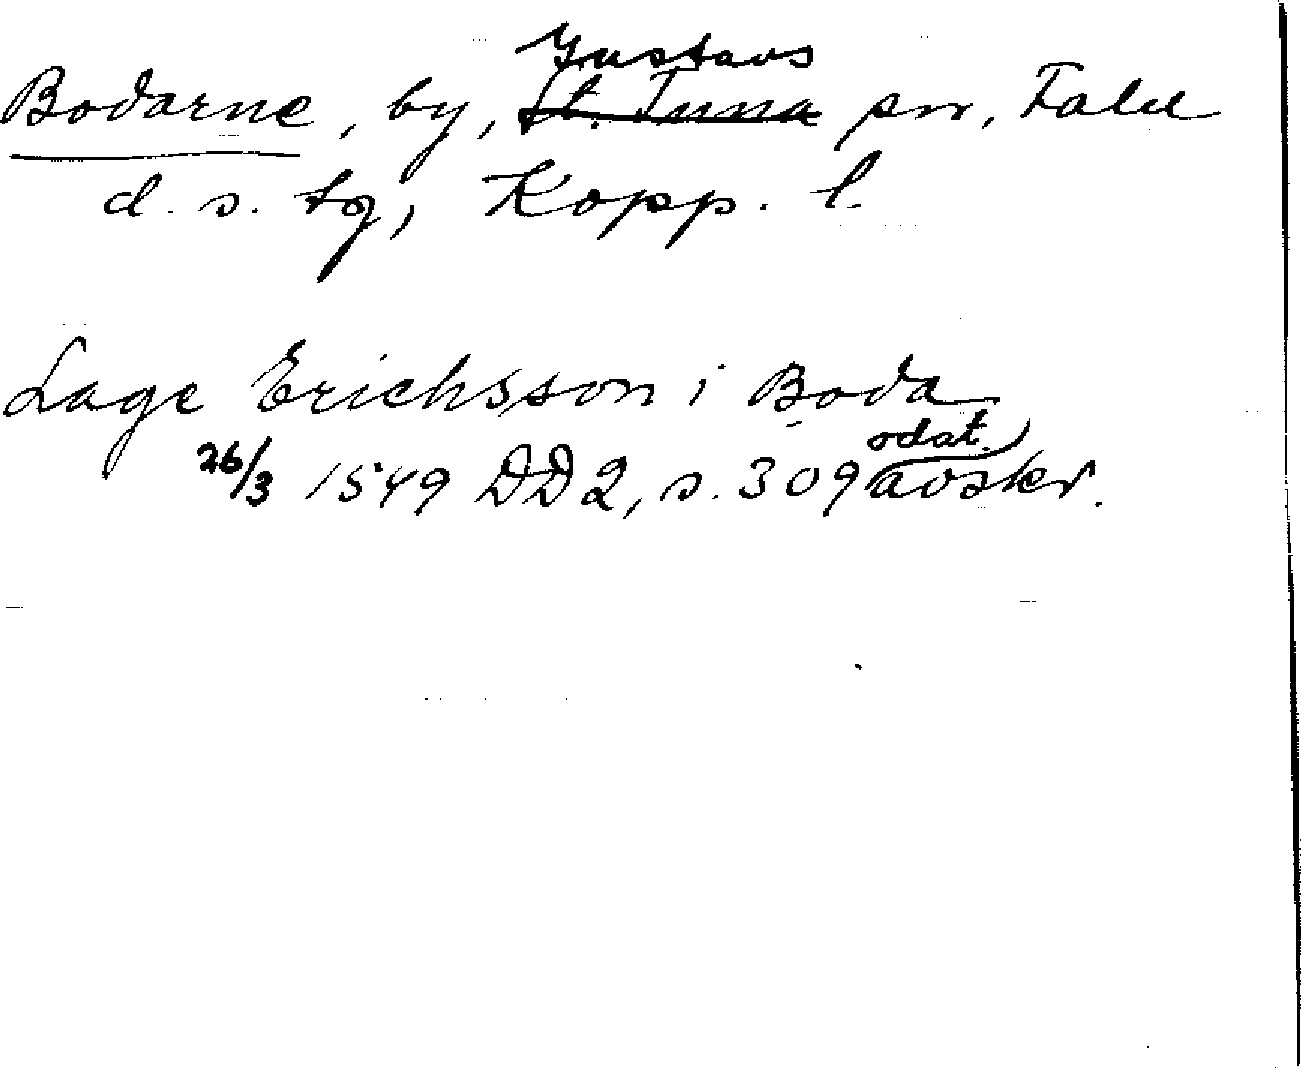 Bodarne, by, Gustavs St. Tuna sn, Falu
d. s. tg, Kopp. l.
Lage Erichsson i Boda
26/3 1549 DD2, s. 309 odat. avskr.